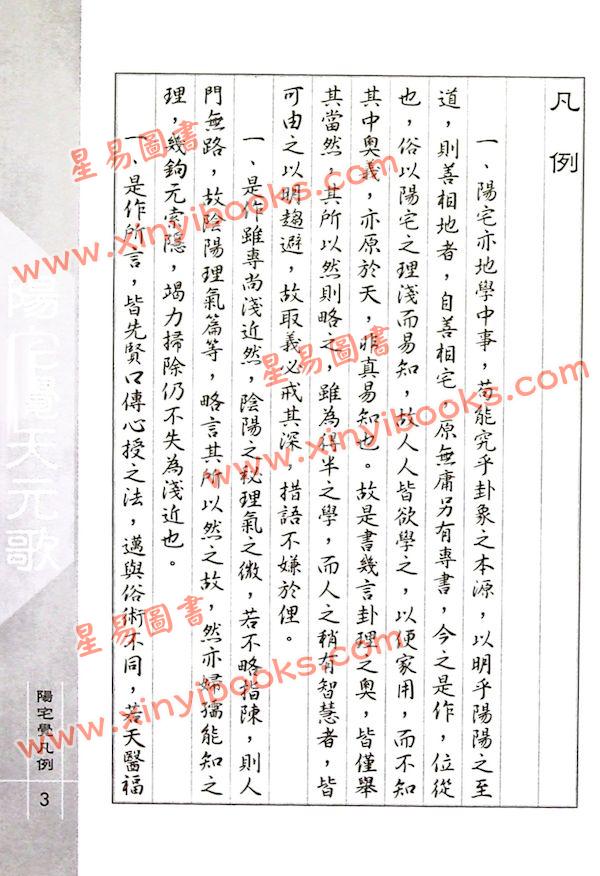 凡例
一、陽宅亦地學中事，苟能究乎卦象之本源，以明乎陽陽之至
道，則善相地者，自善相宅，原無庸另有專書，今之是作，位從
也，俗以陽宅之理淺而易知，故人人皆欲學之，以便家用，而不知
其中奧義，亦原於天，非真易知也。故是書幾言卦理之奧，皆僅舉
其當然，其所以然則略之，雖為得半之學，而人之稍有智慧者，皆
可由之以明趨避，故取義必戒其深，措語不嫌於俚。
一、是作雖專尚淺近然，陰陽之秘理氣之微，若不略指陳，則人
門無路，故陰陽理氣篇等，略言其所以然之故，然亦婦孺能知之
理，幾鉤元索隱，竭力掃除仍不失為淺近也。
一、是作所言，皆先賢口傳心授之法，邁與俗術不同，若天醫福
天元歌
陽宅覺凡例
3
星易圖書
www.xinyibooks.com
星易圖書
www.xinyibooks.com
星易圖書
www.xinyibooks.com